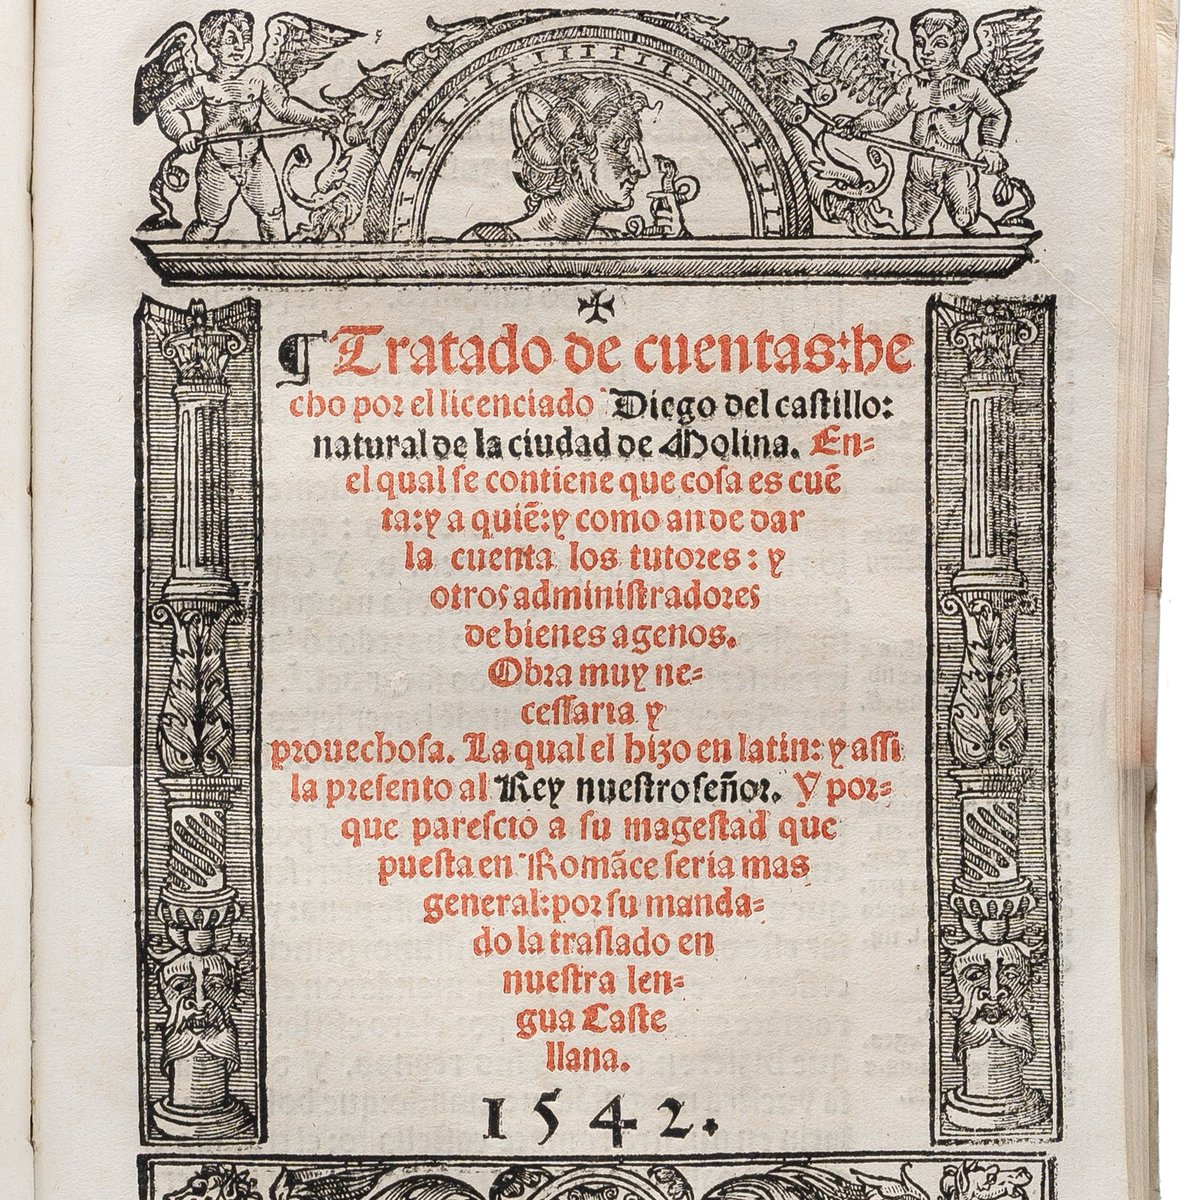 ✠
¶ Tratado de cuentas: he
cho por el licenciado Diego del castillo:
natural de la ciudad de Molina. En=
el qual se contiene que cosa es cuẽ
ta: y a quiẽ: y como an de dar
la cuenta los tutores: y
otros administradores
de bienes agenos.
Obra muy ne=
cessaria y
prouechosa. La qual el hizo en latin: y assi
la presento al Rey nuestro señor. Y por=
que parescio a su magestad que
puesta en Romãce seria mas
general: por su manda=
do la traslado en
nuestra len=
gua Caste
llana.
1542.